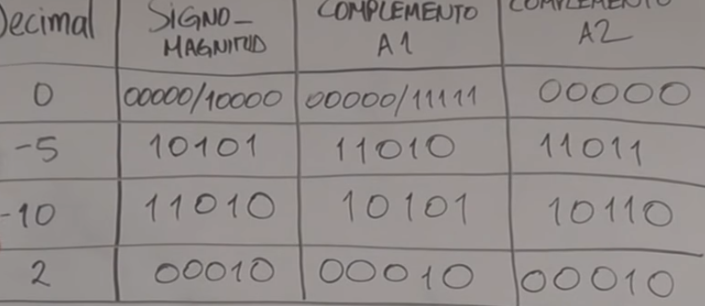 Decimal SIGNO- COMPLEMENTO COMPLEMENTO
MAGNITUD A1 A2
0 00000/10000 00000/11111 00000
-5 10101 11010 11011
-10 11010 10101 10110
2 00010 00010 00010